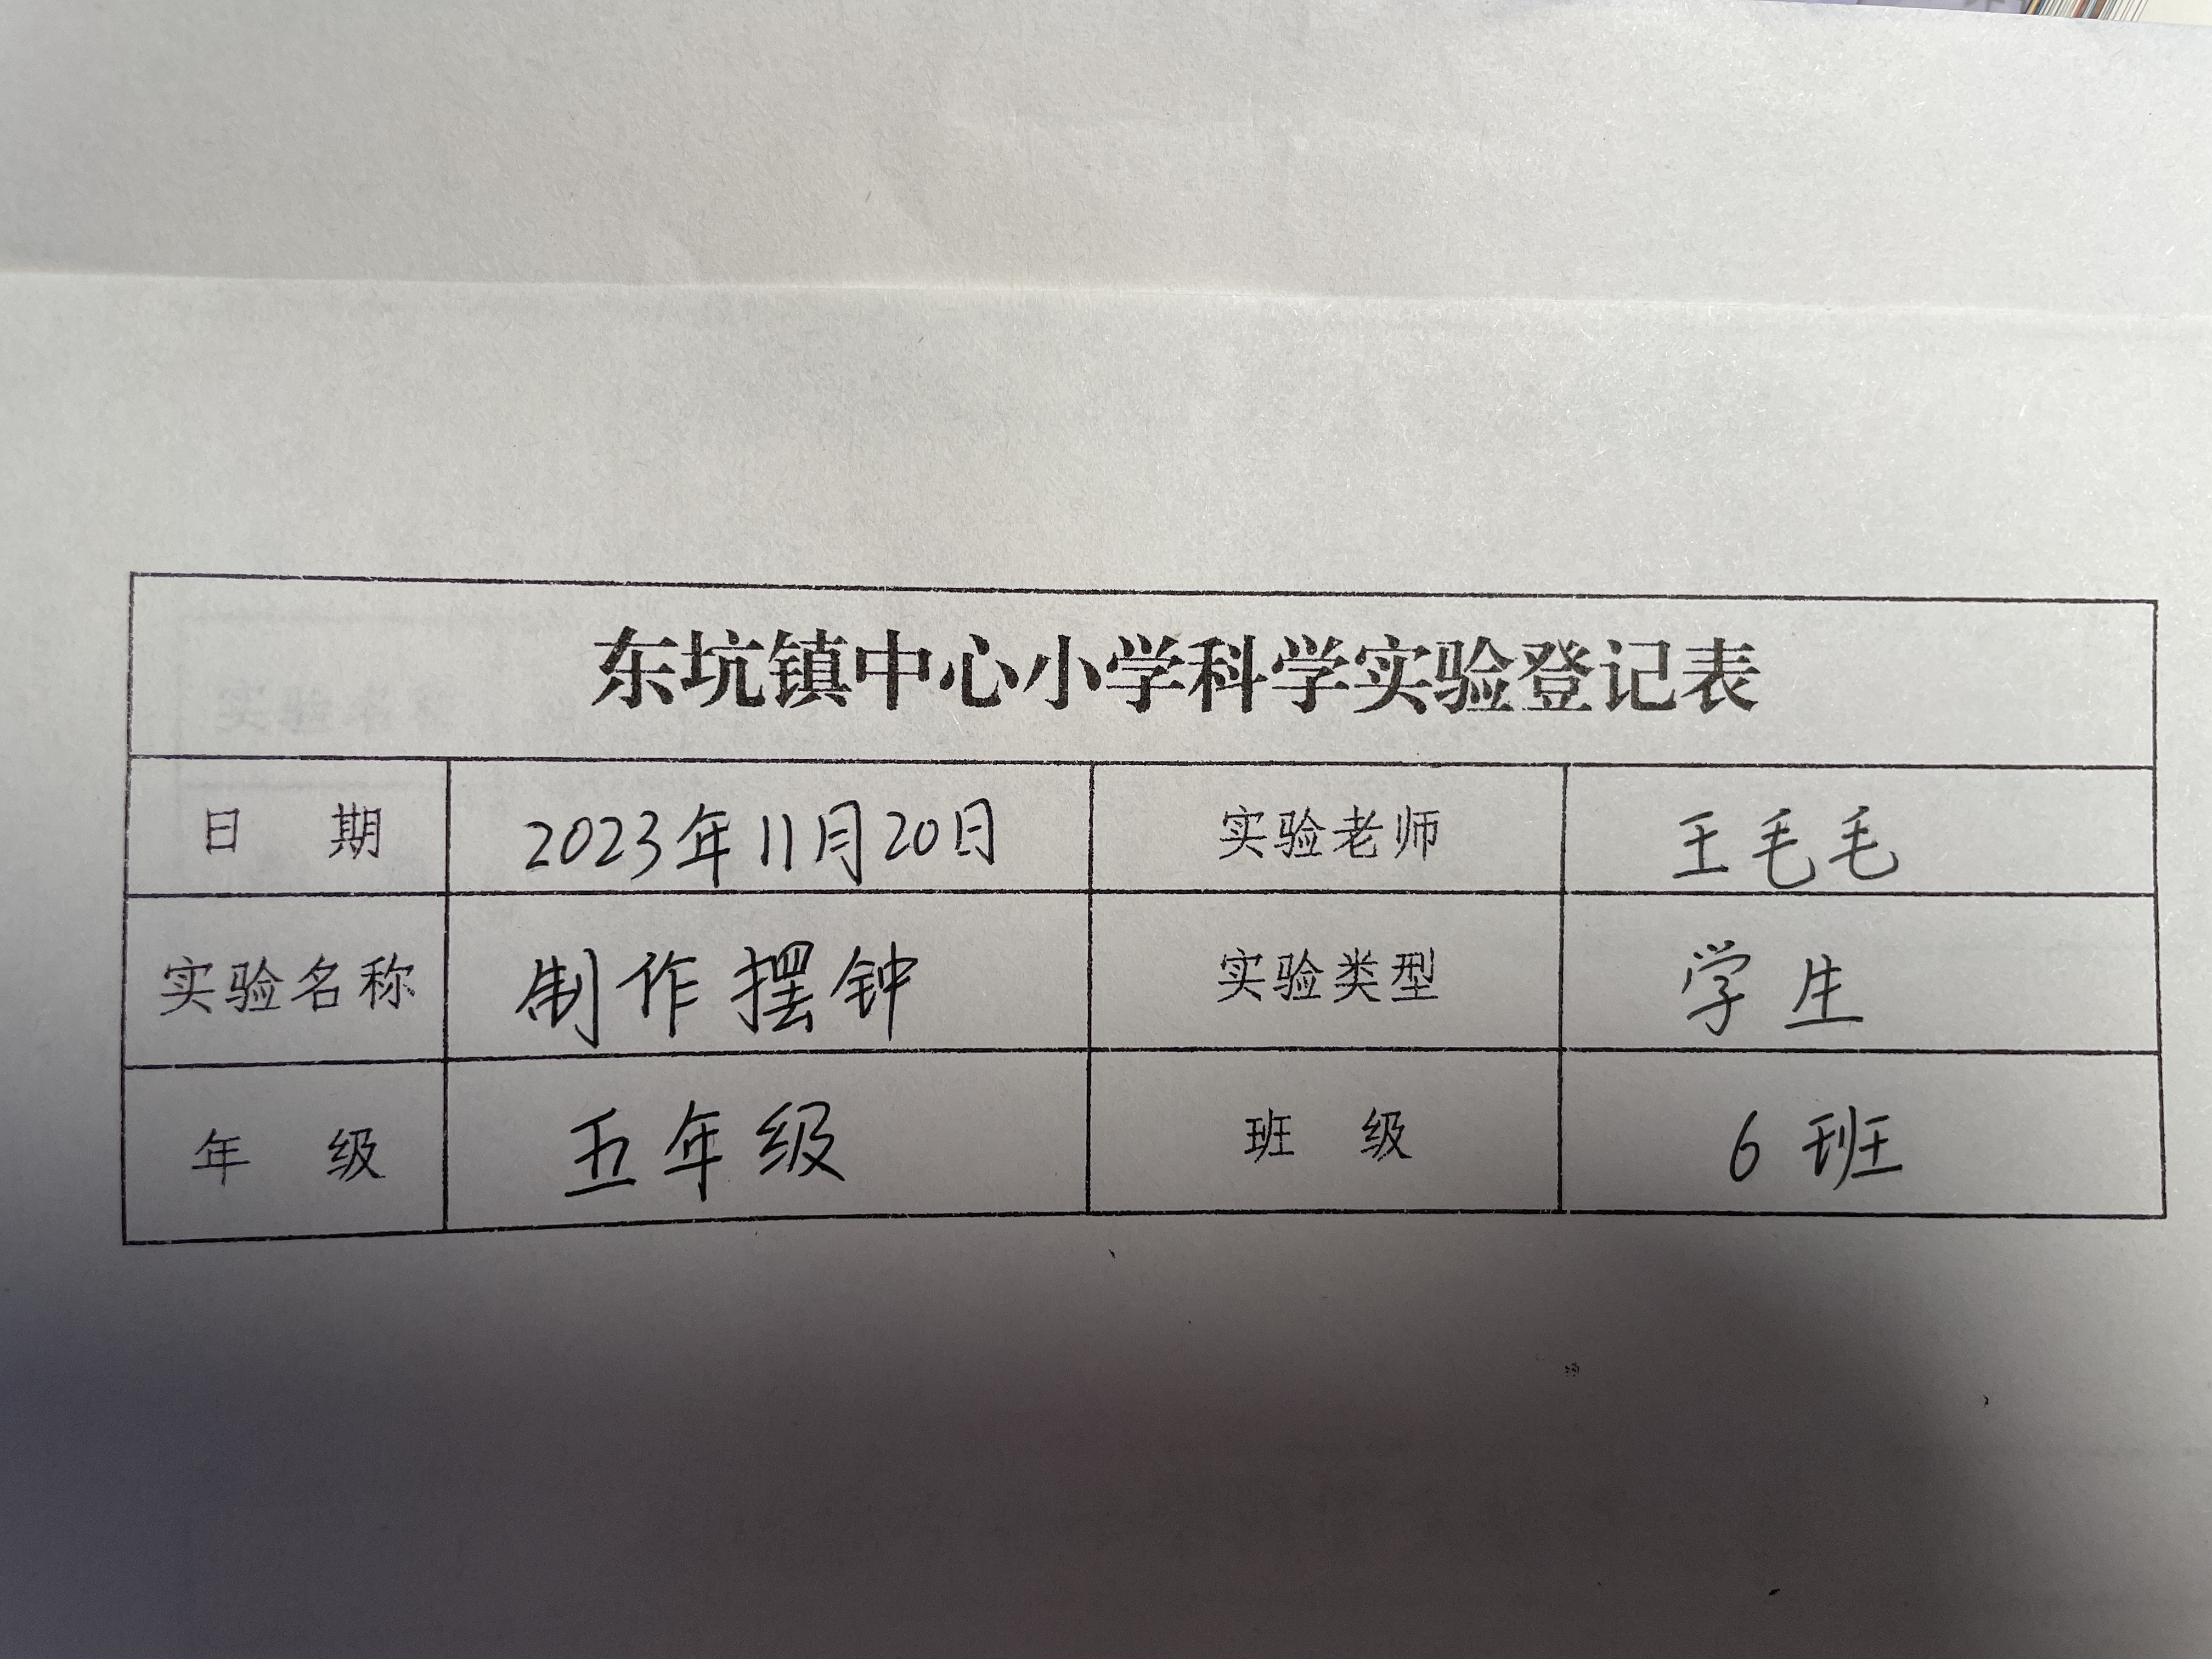 东坑镇中心小学科学实验登记表
日 期 2023年11月20日 实验老师 王毛毛
实验名称 制作摆钟 实验类型 学生
年 级 五年级 班 级 6班